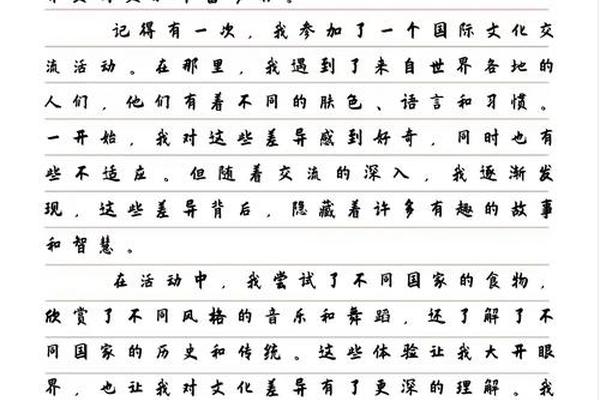 记得有一次，我参加了一个国际文化交
流活动。在那里，我遇到了来自世界各地的
人们，他们有着不同的肤色、语言和习惯。
一开始，我对这些差异感到好奇，同时也有
些不适应。但随着交流的深入，我逐渐发
现，这些差异背后，隐藏着许多有趣的故事
和智慧。
在活动中，我尝试了不同国家的食物，
欣赏了不同风格的音乐和舞蹈，还了解了不
同国家的历史和传统。这些体验让我大开眼
界，也让我对文化差异有了更深的理解。我